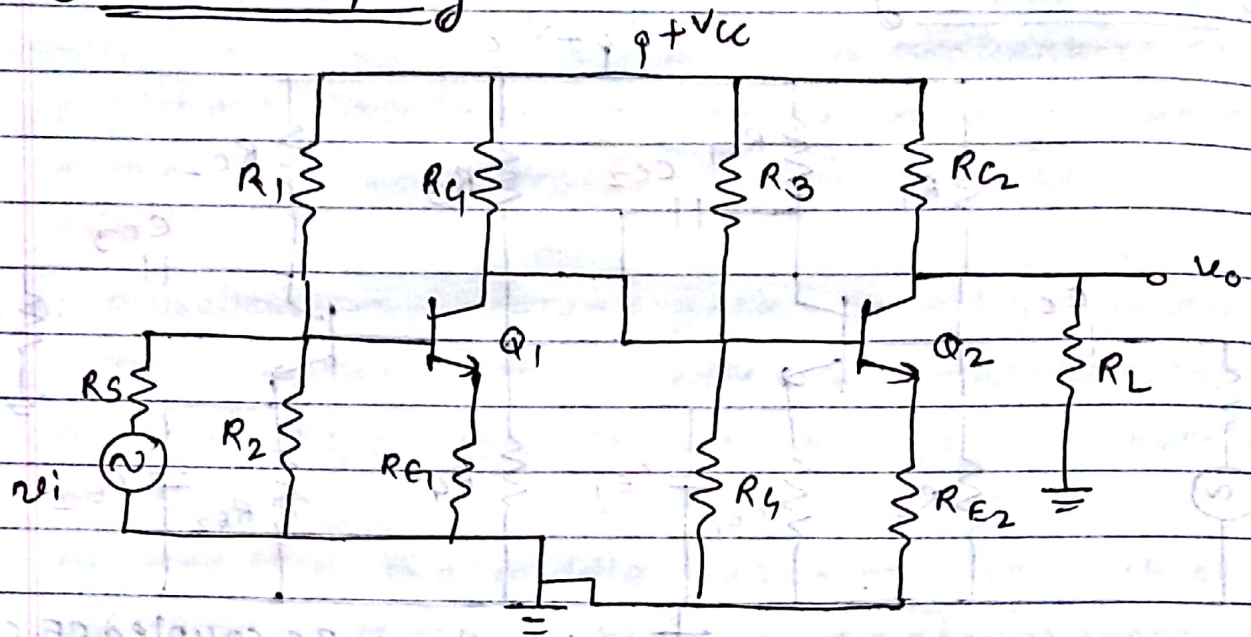 +VCC
R1
RC1
R3
RC2
vo
Q1
Q2
RS
R2
RE1
R4
RE2
RL
vi